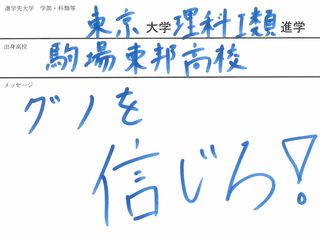 進学先大学 学部・科類等
東京大学理科I類進学
出身高校
駒場東邦高校
メッセージ
グノを
信じろ!